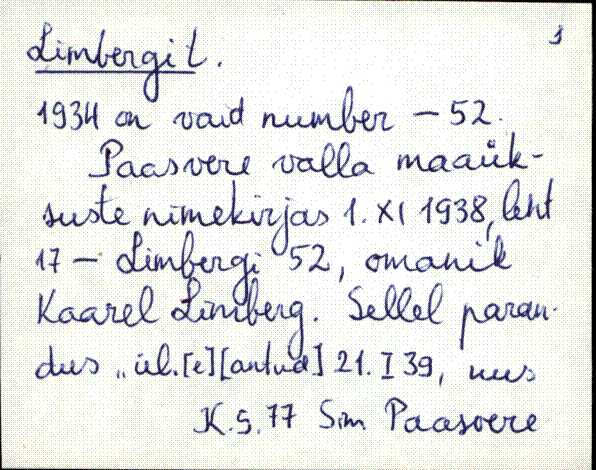 Limbergi t. 1
1934 on vaid number – 52.
Paasvere valla maaük-
suste nimekirjas 1. XI 1938, leht
17 – Limbergi 52, omanik
Kaarel Limberg. Sellel paran-
dus „ül.[e][antud] 21. I 39, uus
K.S.77 Sim Paasvere